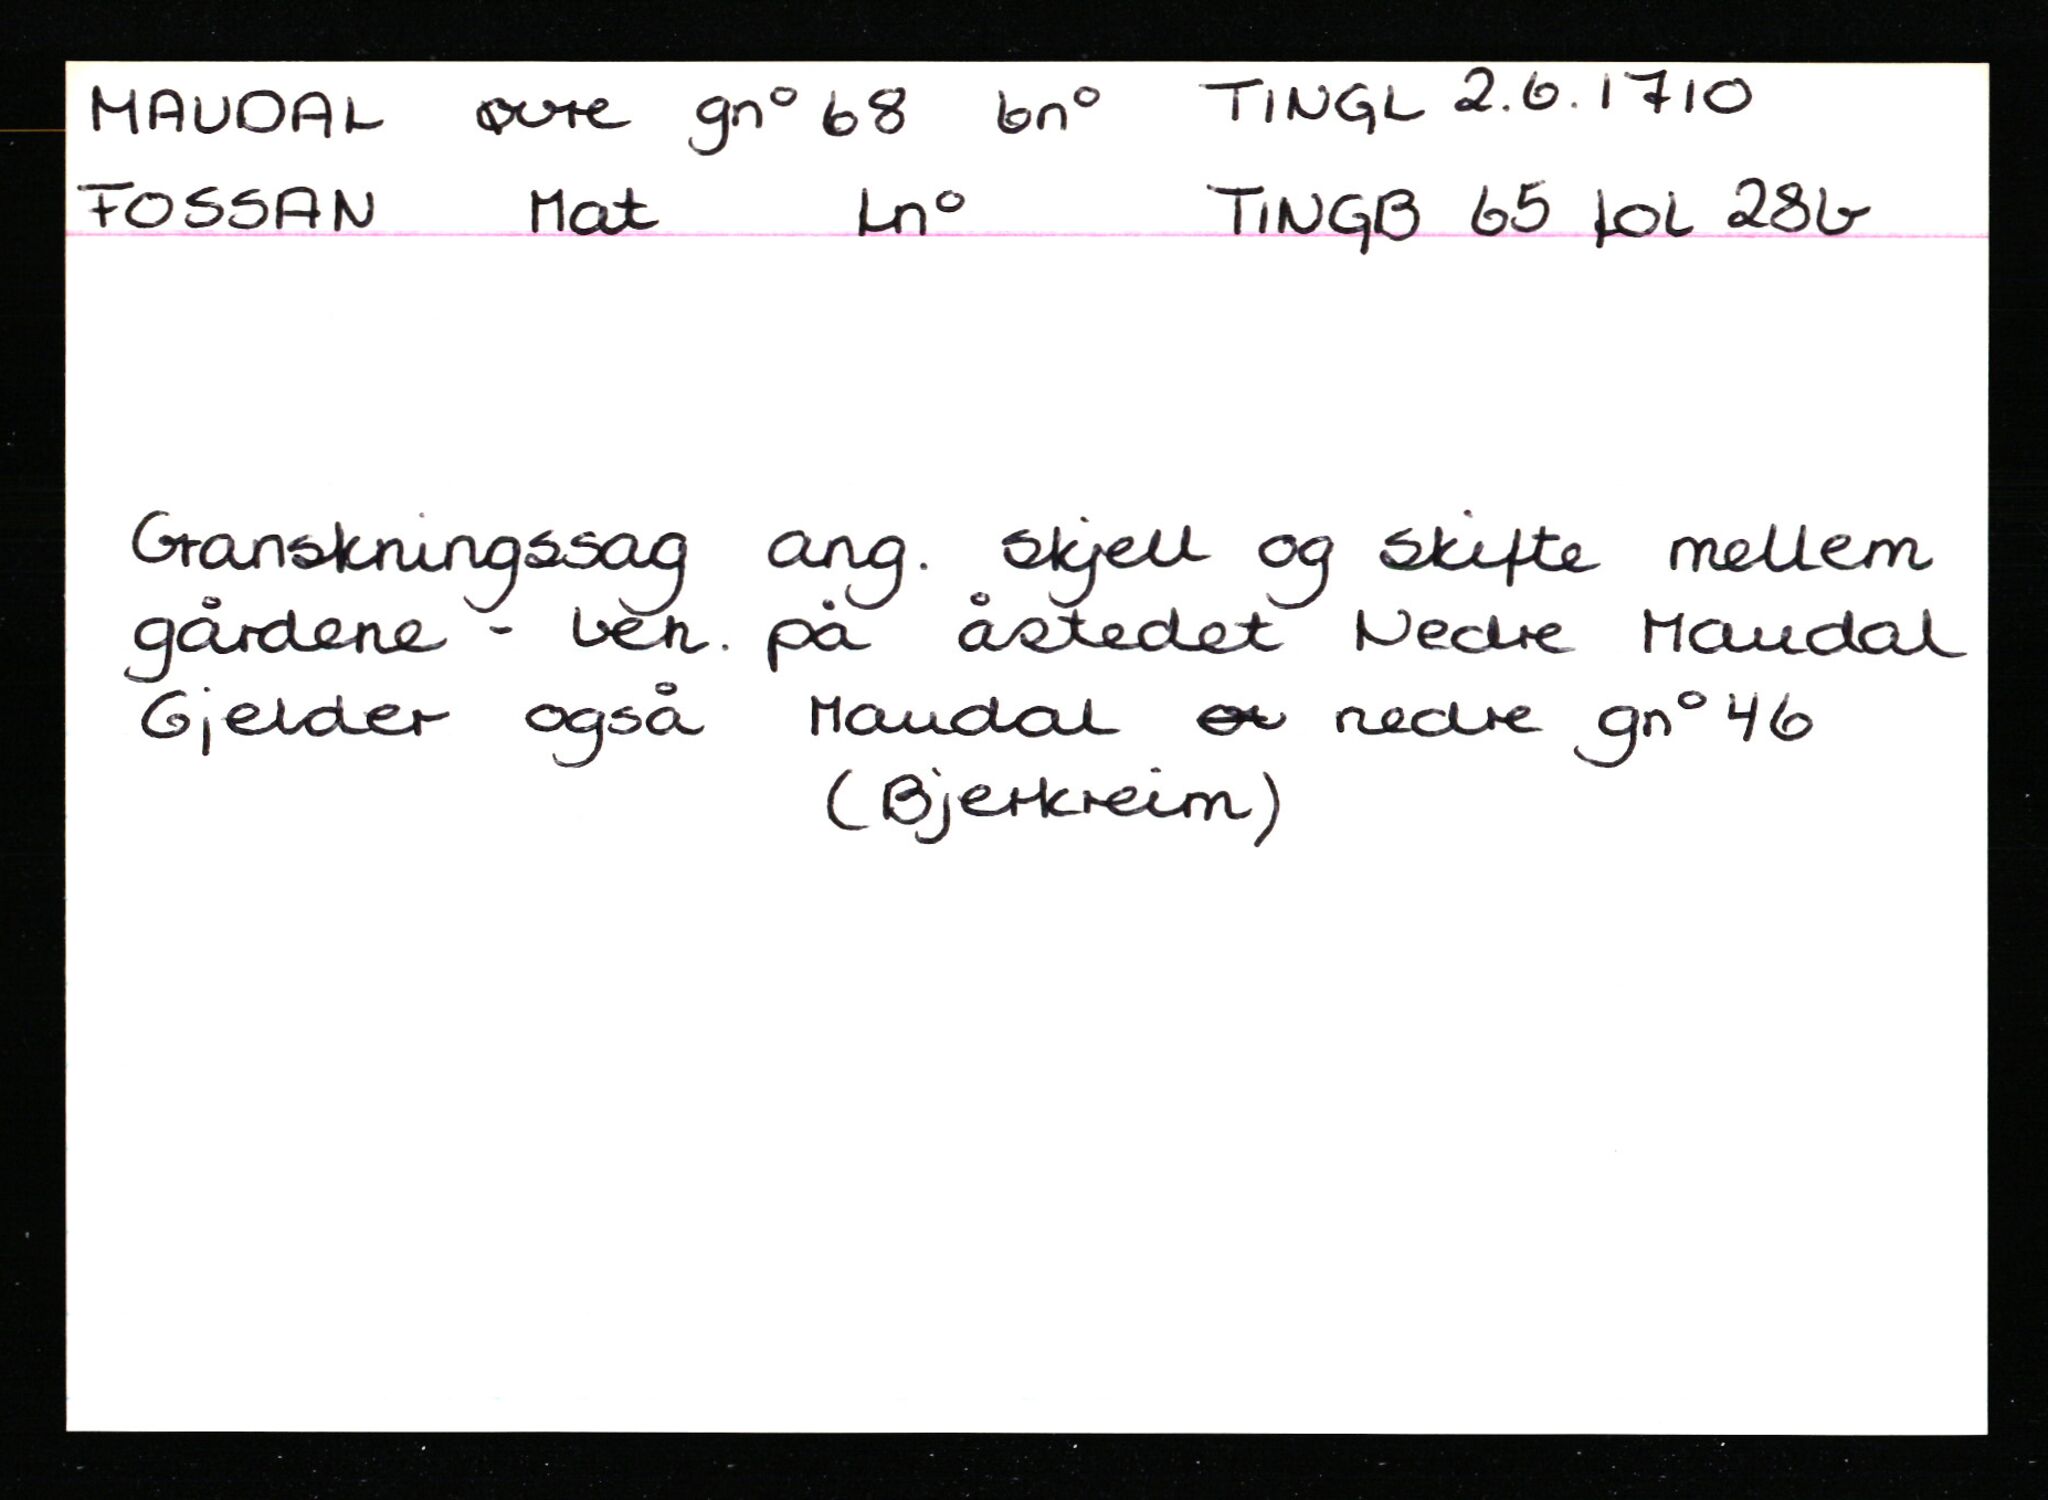 MAUDAL øvre gn° 68 bn° TINGL 2.6.1710
FOSSAN Mat Ln° TINGB 65 fol 28b
Granskningssag ang. skjell og skifte mellem
gårdene - ven. på åstedet Nedre Maudal
Gjelder også Maudal nedre gn° 46
(Bjerkreim)